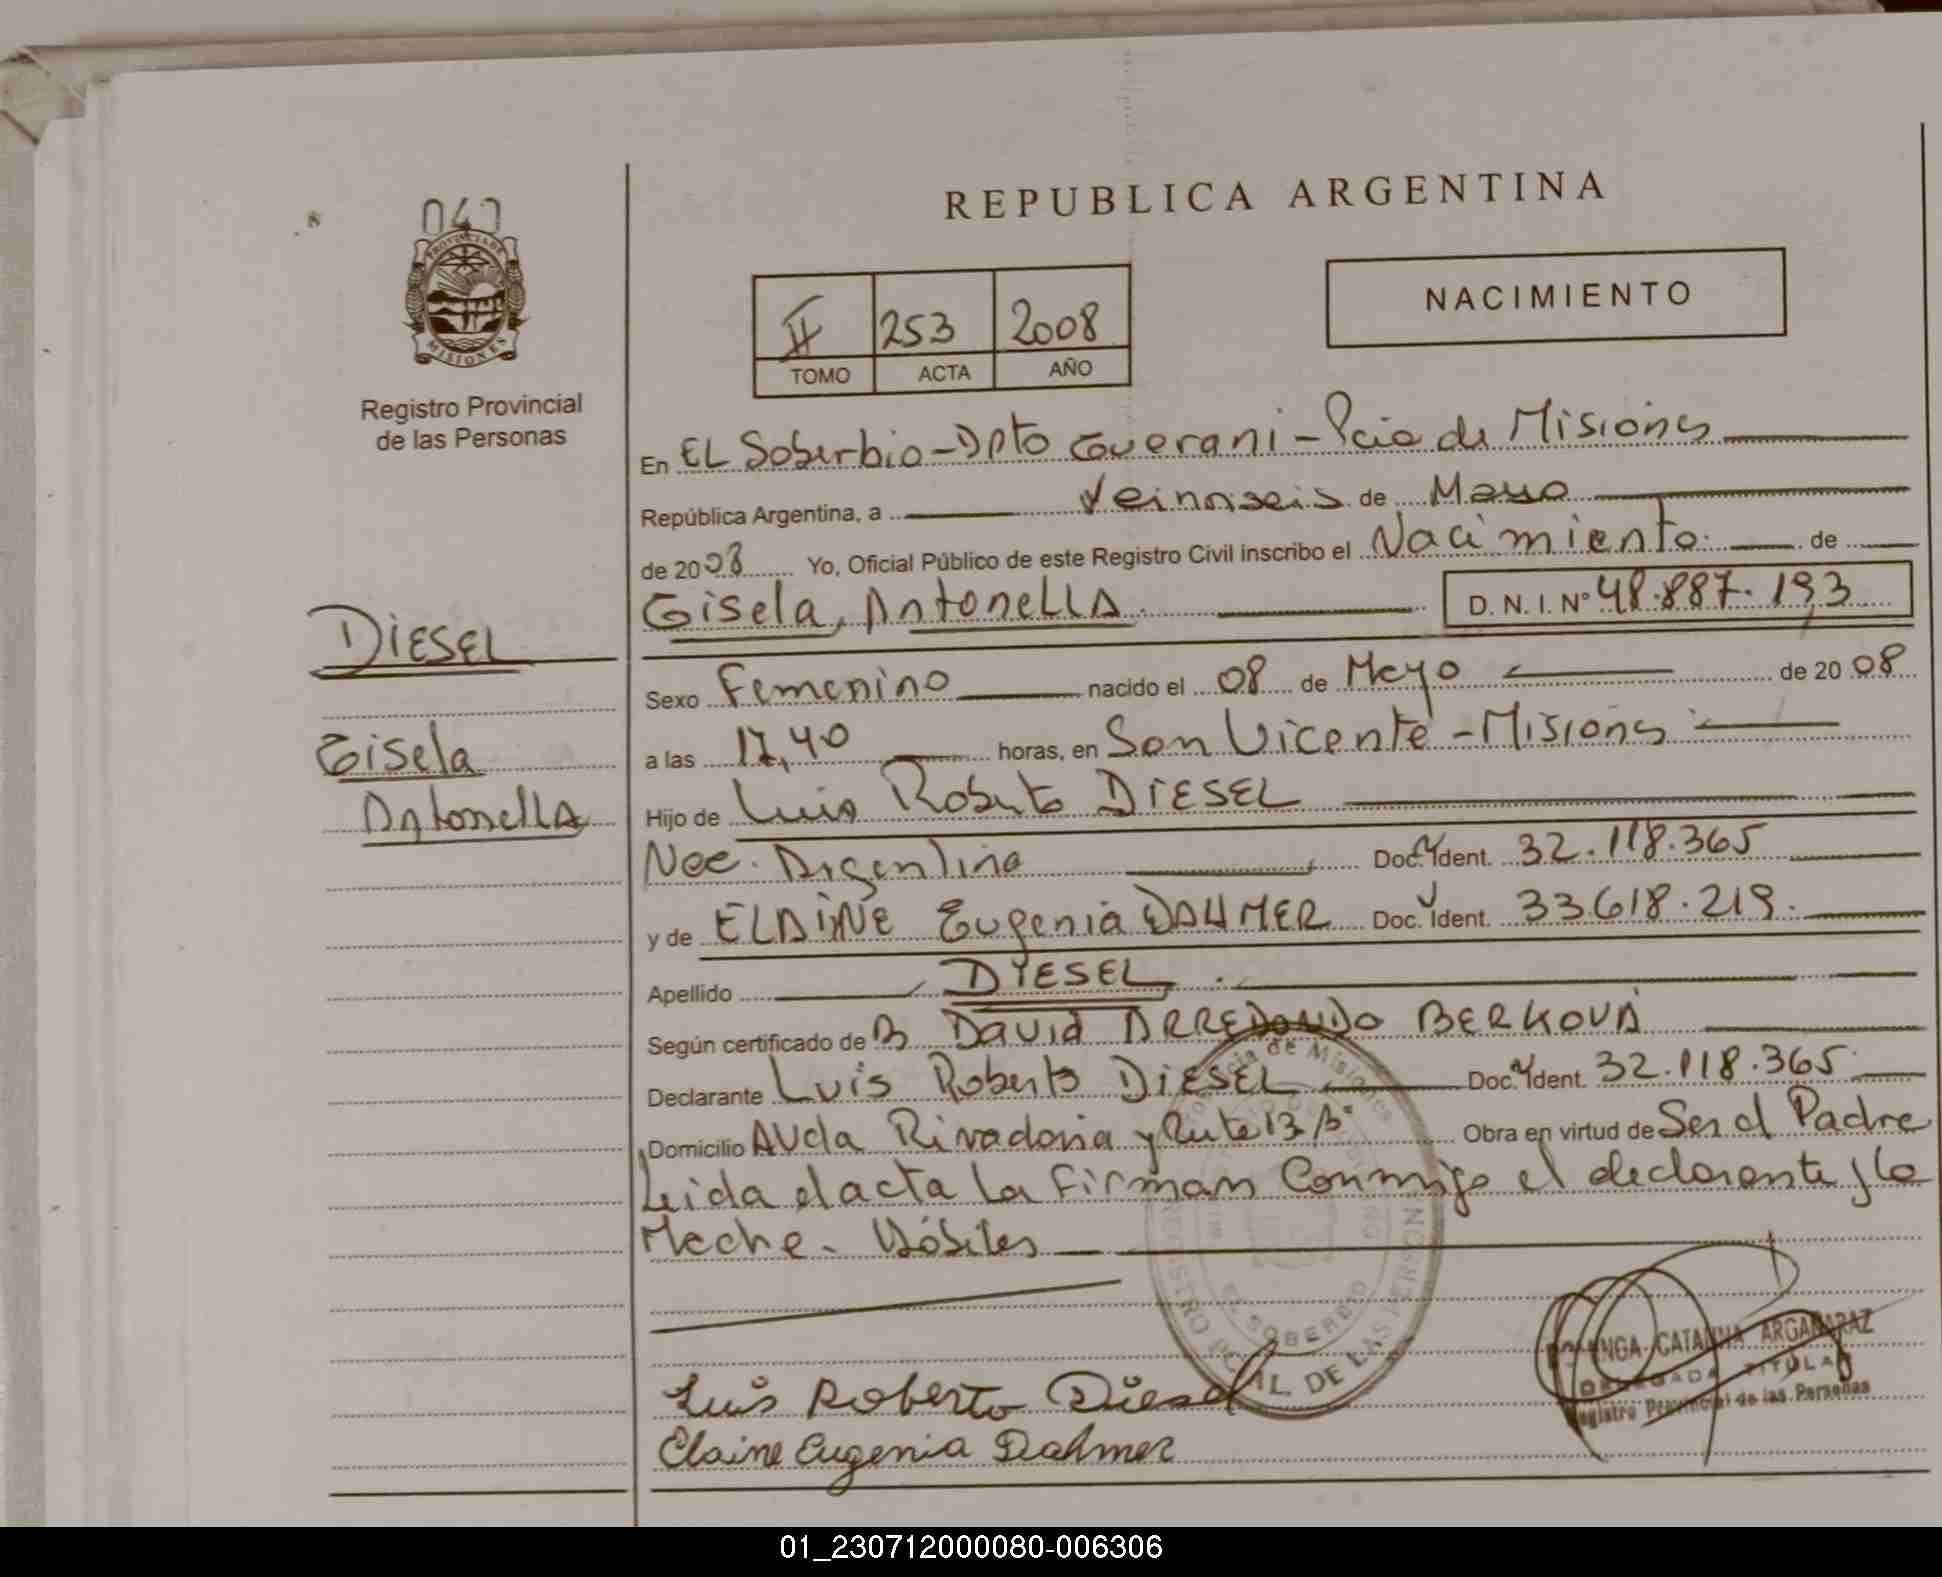 040
PROVINCIA DE
MISIONES
Registro Provincial
de las Personas
REPUBLICA ARGENTINA
NACIMIENTO
II 253 2008
TOMO ACTA AÑO
En EL Soberbio - Dpto Guarani - Pcia de Misiones
República Argentina, a Veintiseis de Mayo
de 2008 Yo, Oficial Público de este Registro Civil inscribo el Nacimiento de
Gisela, Antonella D. N. I. Nº 48.887.193
DIESEL
Gisela
Antonella
Sexo Femenino nacido el 08 de Mayo de 2008
a las 17,40 horas, en San Vicente - Misiones
Hijo de Luis Roberto DIESEL
Nac. Argentina Doc. Ident. 32.118.365
y de ELAINE Eugenia DAHMER Doc. Ident. 33.618.219.
Apellido DIESEL.
Según certificado de David ARREDONDO BERKOVA
Declarante Luis Roberto DIESEL Doc. Ident. 32.118.365
Domicilio Avda Rivadavia y Ruta 13 Obra en virtud de Ser el Padre
Leida el acta la Firman Conmigo el declarante y la
Madre.
Luis Roberto Diesel
Elaine Eugenia Dahmer
Provincia de Misiones
EL SOBERBIO
REGISTRO PCIAL. DE LAS PERSONAS
CATALINA ARGAÑARAZ
DELEGADA TITULAR
Registro Provincial de las Personas
01_230712000080-006306